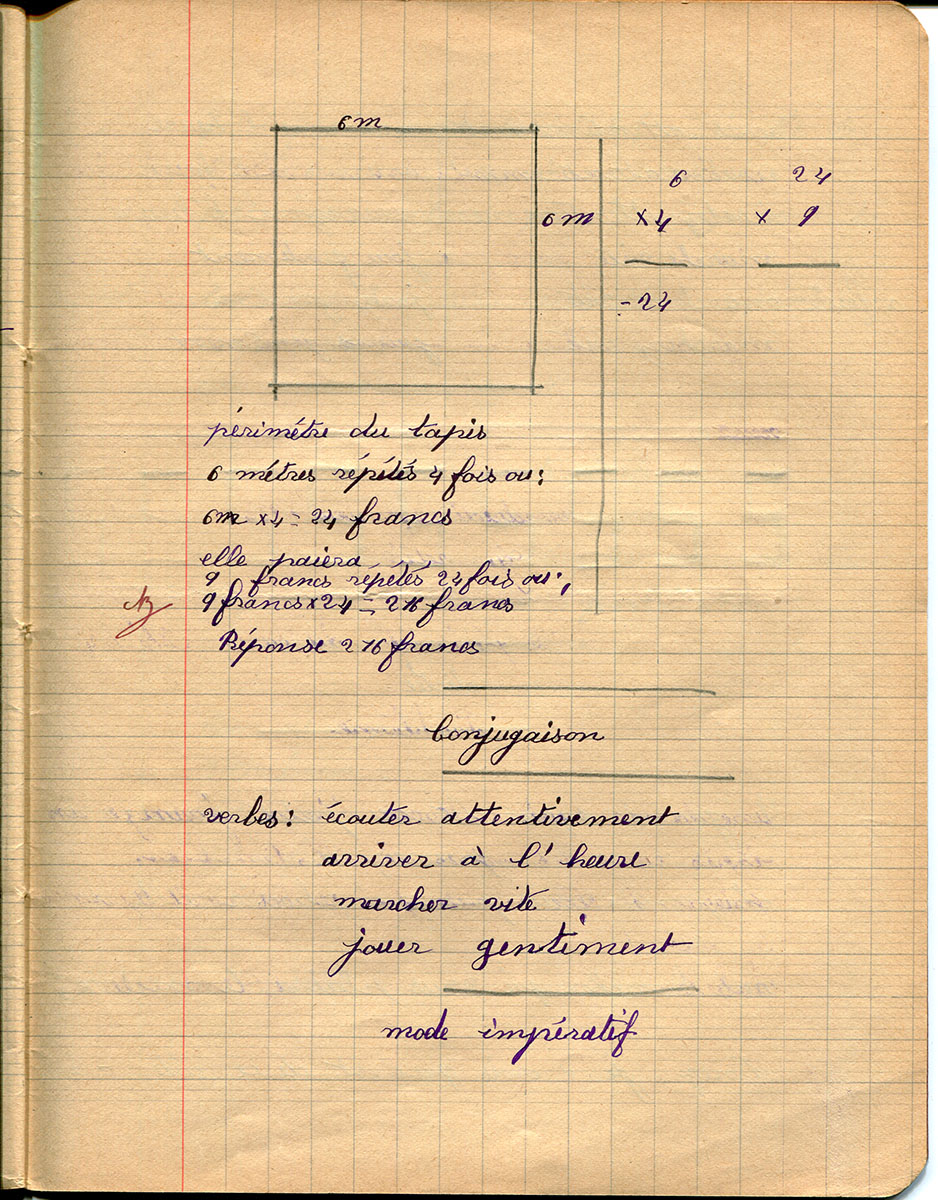 6m
6m
6 24
×4 × 9
= 24
périmétre du tapis
6 métres répétés 4 fois ou:
6m ×4 = 24 francs
elle paiera
9 francs répétés 24 fois ou:
9 francs × 24 = 216 francs
Réponse 216 francs
Conjugaison
verbes: écouter attentivement
arriver à l'heure
marcher vite
jouer gentiment
mode impératif